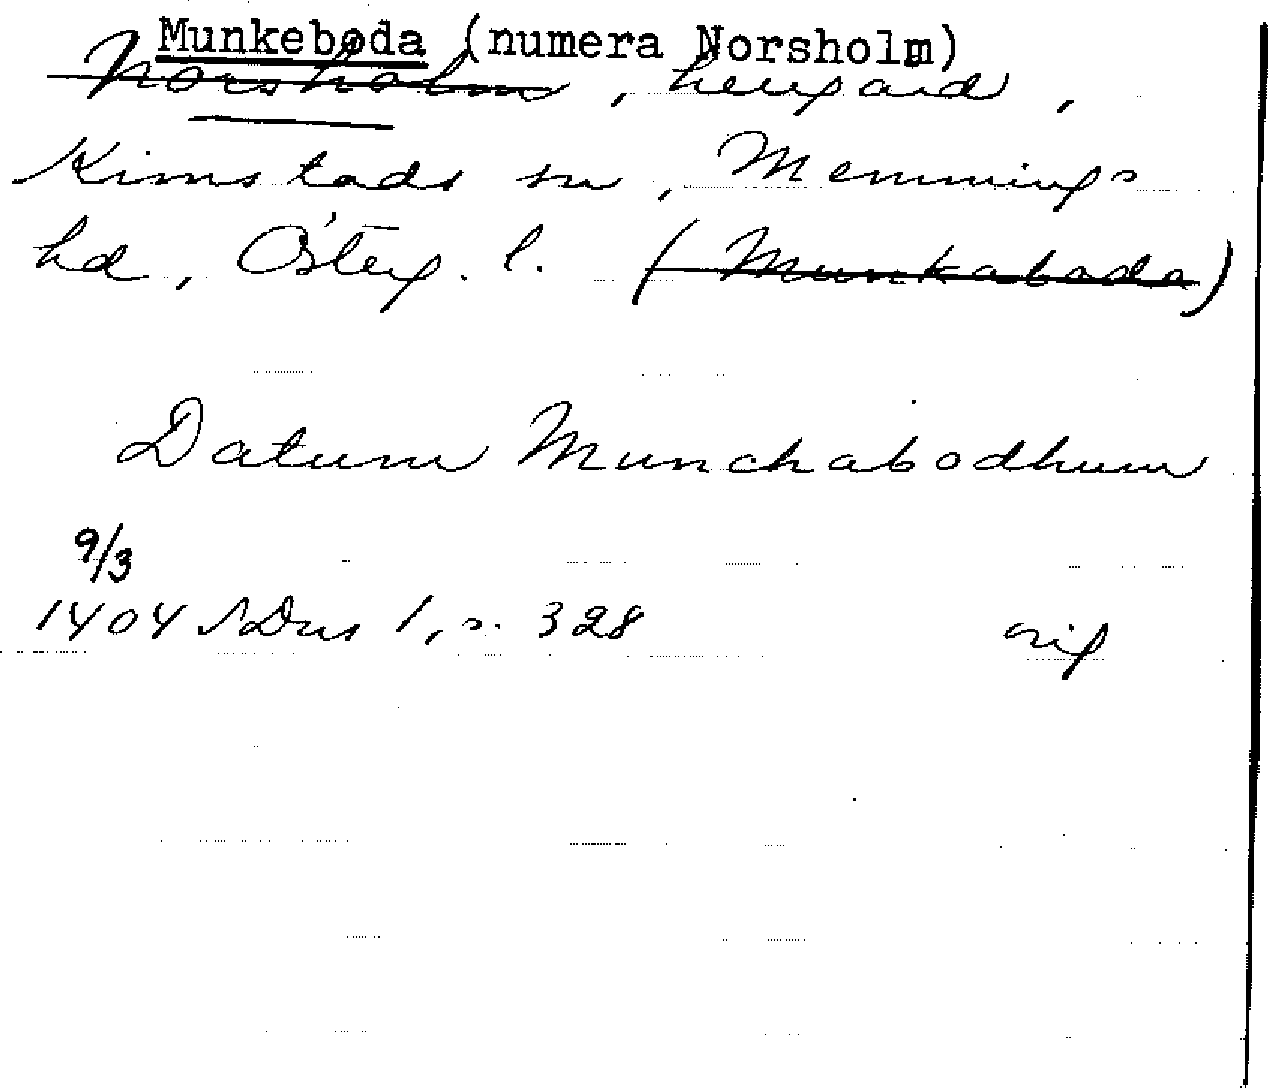 Munkeboda (numera Norsholm)
Norsholm, herrgård,
Kimstads sn, Memmings
hd, Österg. l. (Munkaboda)
Datum Munchabodhum
9/3
1404 SDns 1, s. 328 orig